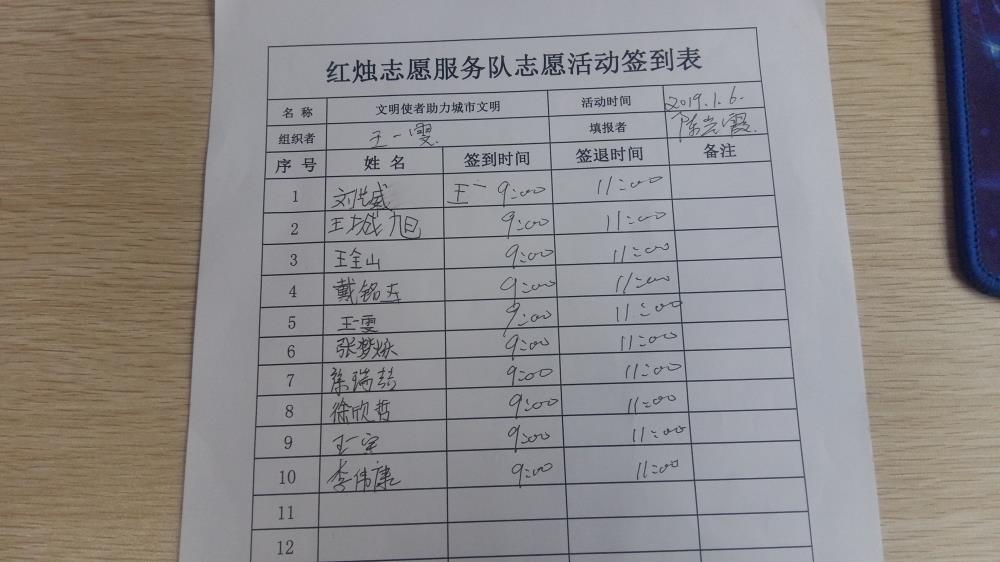 红烛志愿服务队志愿活动签到表
名 称 文明使者助力城市文明 活动时间 2019.1.6.
组织者 王一雯. 填报者 陈 霞.
序 号 姓 名 签到时间 签退时间 备注
1 刘 威 王一 9:00 11:00
2 王城旭 9:00 11:00
3 王金山 9:00 11:00
4 戴铭 9:00 11:00
5 王一雯 9:00 11:00
6 张梦 9:00 11:00
7 徐瑞喆 9:00 11:00
8 徐欣哲 9:00 11:00
9 王一宇 9:00 11:00
10 李伟康 9:00 11:00
11
12